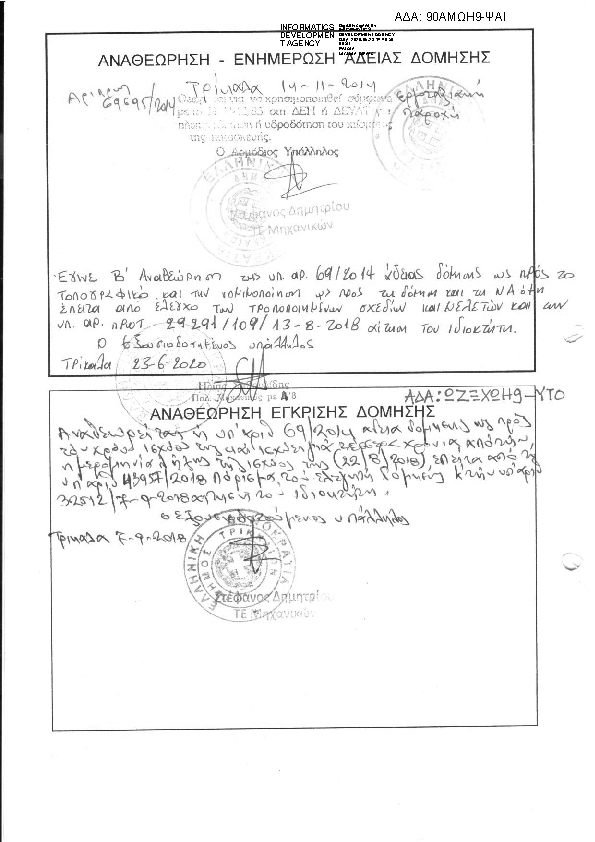 ΑΔΑ: 90ΑΜΩΗ9-ΨΑΙ
INFORMATICS
DEVELOPMEN
T AGENCY
ΑΝΑΘΕΩΡΗΣΗ - ΕΝΗΜΕΡΩΣΗ ΑΔΕΙΑΣ ΔΟΜΗΣΗΣ
Τρίκαλα 14-11-2014
69695/2014
να χρησιμοποιηθεί
εργοταξιακή
παροχή
ΔΕΗ ή ΔΕΥΑΤ
ή υδροδότηση του
της κατασκευής.
Ο Αρμόδιος Υπάλληλος
Στέφανος Δημητρίου
ΤΕ Μηχανικών
Έγινε Β' Αναθεώρηση της υπ. αρ. 69/2014 άδειας δόμησης ως προς το
τοπογραφικό και την νομιμοποίηση ως προς τη δόμηση και τις
έπειτα από έλεγχο των τροποποιημένων σχεδίων και μελετών και την
υπ. αρ. πρωτ 29291/109/13-8-2018 αίτηση του ιδιοκτήτη.
Ο εξουσιοδοτημένος υπάλληλος
Τρίκαλα 23-6-2020
με Α'β
ΑΔΑ: ΩΖΞΧΩΗ9-ΥΤΟ
ΑΝΑΘΕΩΡΗΣΗ ΕΓΚΡΙΣΗΣ ΔΟΜΗΣΗΣ
Αναθεωρείται η υπ' αριθ 69/2014 άδεια δόμησης ως προς
τον χρόνο ισχύος της και ισχύει για τέσσερα χρόνια από την
ημερομηνία λήξης της ισχύος της (22/8/2018), έπειτα από το
υπ' αριθ 43957/2018 πόρισμα του ελεγκτή δόμησης κ' την υπ' αριθ
32512/7-9-2018 αίτηση του ιδιοκτήτη.
ο εξουσιοδοτούμενος υπάλληλος
Τρίκαλα 7-9-2018
ΕΛΛΗΝΙΚΗ ΔΗΜΟΚΡΑΤΙΑ
ΔΗΜΟΣ ΤΡΙΚΚΑΙΩΝ
Στέφανος Δημητρίου
ΤΕ Μηχανικών